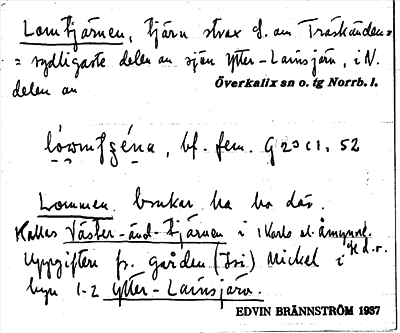 Lomtjärnen, tjärn strax S. om Träskänden=
= sydligaste delen av sjön Ytter-Lainsjärv, i N.
delen av
Överkalix sn o. tg Norrb. l.
bf. fem. G 23 c 1, 52
Lommen brukar ha bo där.
Kallas Väster-änd-tjärnen i
Uppgiften fr. gården (Isi) Mickel i
byn 1-2 Ytter-Lainsjärv.
EDVIN BRÄNNSTRÖM 1937